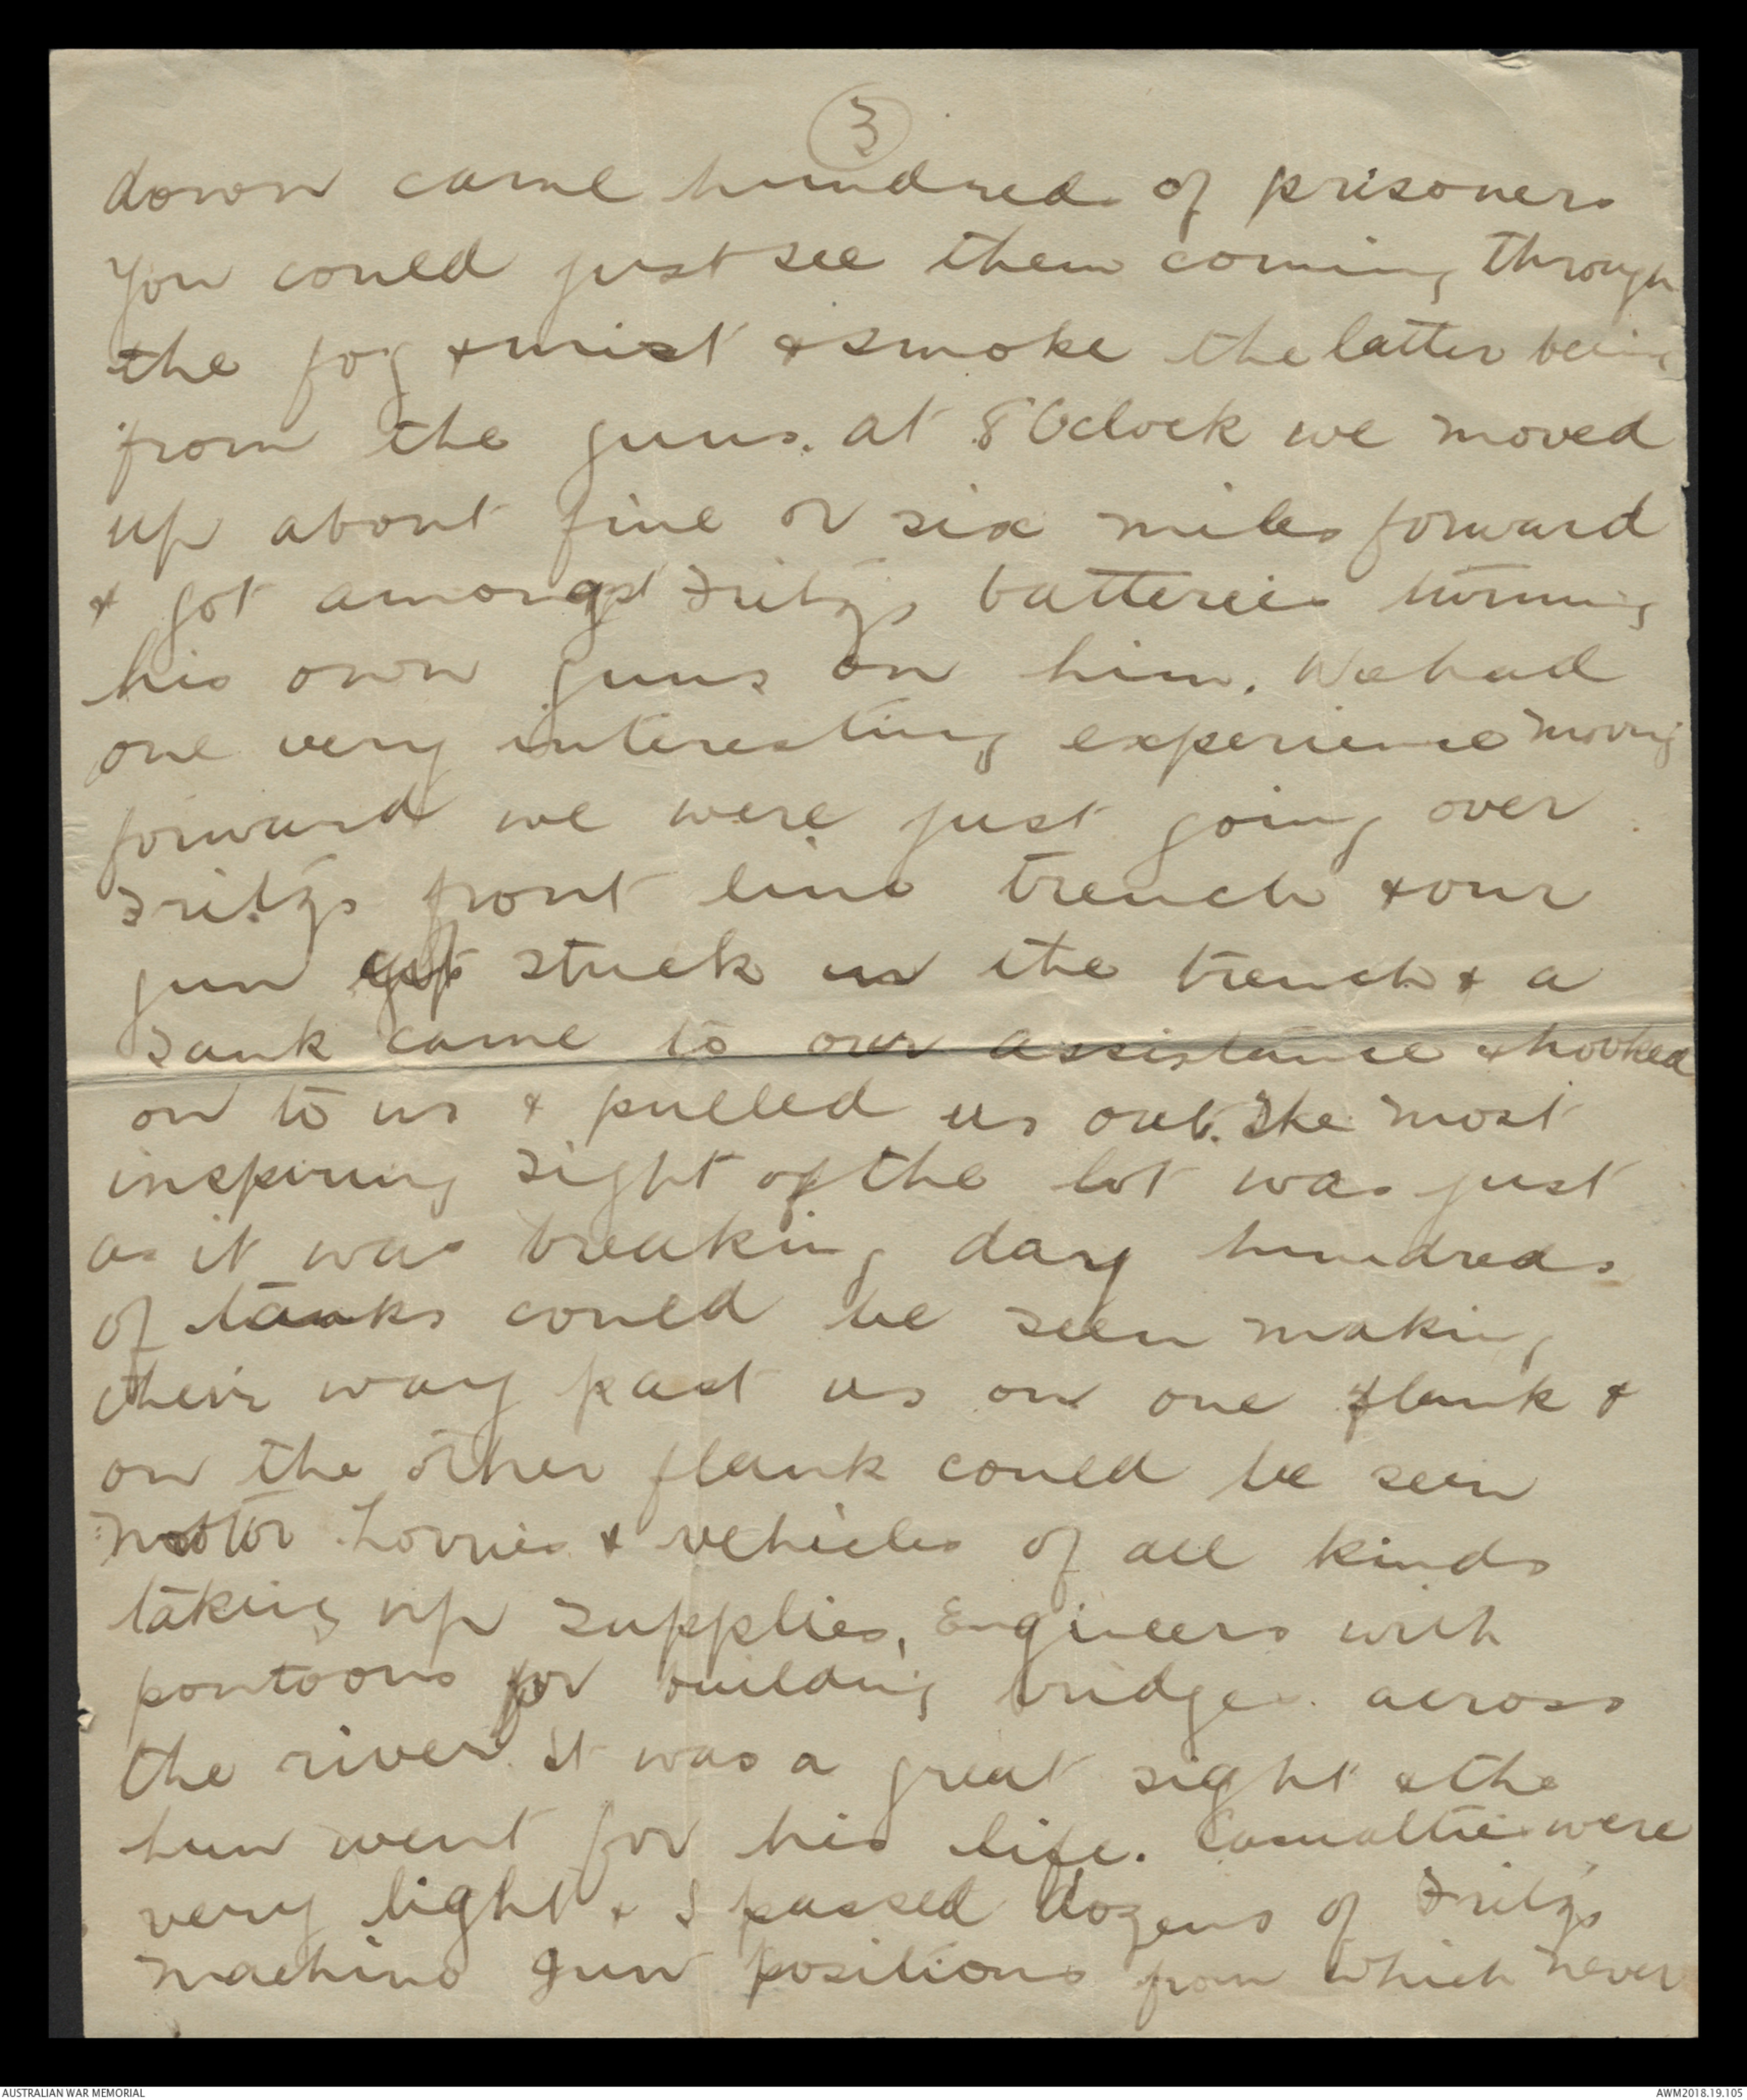 3
down came hundreds of prisoners
You could just see them coming through
the fog & mist & smoke the latter being
from the guns. at 8 Oclock we moved
up about five or six miles forward
& got amongst Fritz's batteries turning
his own guns on him. We had
one very interesting experience moving
forward we were just going over
Fritz's front line trench & our
gun got stuck in the trench & a
Tank came to our assistance & hooked
on to us & pulled us out. The most
inspiring sight of the lot was just
as it was breaking day hundreds
of tanks could be seen making
their way past us on one flank &
on the other flank could be seen
Motor Lorries & vehicles of all kinds
taking up supplies, Engineers with
pontoons for building bridges across
the river. It was a great sight & the
hun went for his life. Casualties were
very light & I passed dozens of Fritz's
machine gun positions from which never
AUSTRALIAN WAR MEMORIAL
AWM2018.19.105